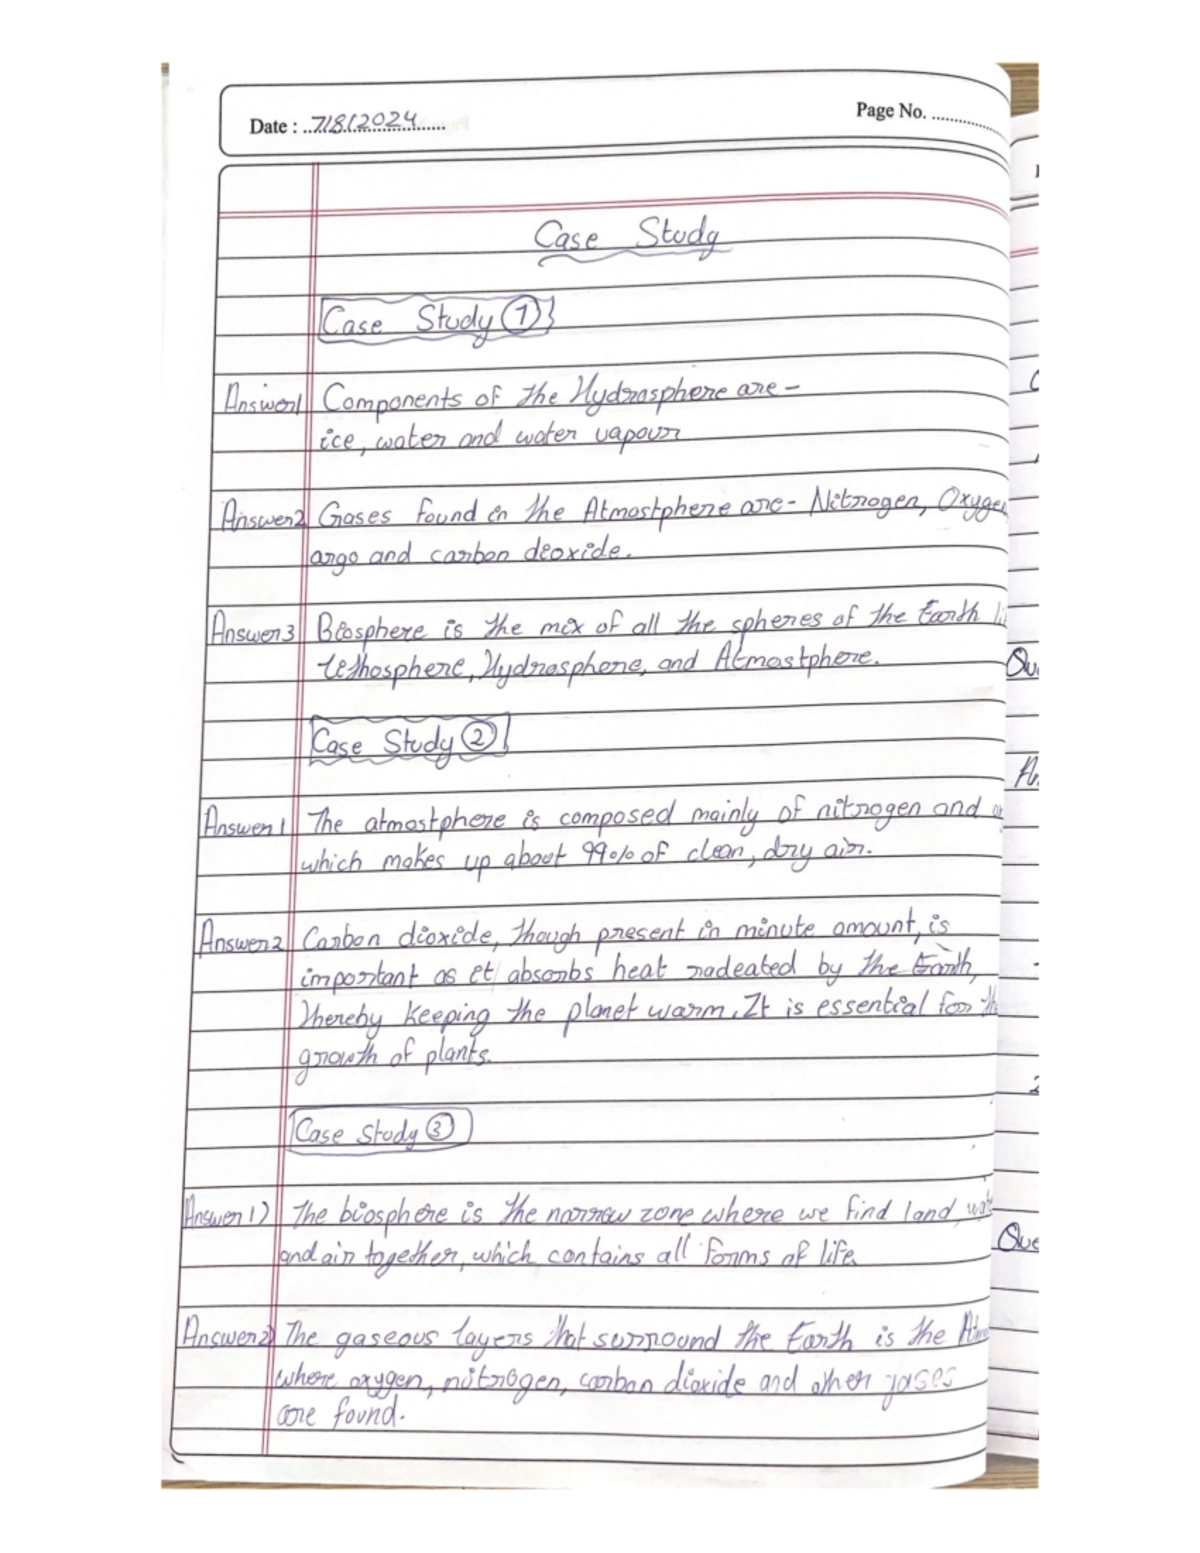 Date : 7/8/2024
Page No.
Case Study
Case Study 1
Answer1 Components of the Hydrosphere are -
ice, water and water vapour
Answer2 Gases found in the Atmostphere are - Nitrogen, Oxygen
argo and carbon dioxide.
Answer3 Biosphere is the mix of all the spheres of the Earth
lithosphere, Hydrosphere, and Atmostphere.
Case Study 2
Answer1 The atmostphere is composed mainly of nitrogen and
which makes up about 99% of clean, dry air.
Answer2 Carbon dioxide, though present in minute amount, is
important as it absorbs heat radeated by the Earth,
thereby keeping the planet warm. It is essential for
growth of plants.
Case Study 3
Answer1) The biosphere is the narrow zone where we find land,
and air together, which contains all forms of life
Answer2) The gaseous layers that surround the Earth is the
where oxygen, nitrogen, carbon dioxide and other gases
are found.